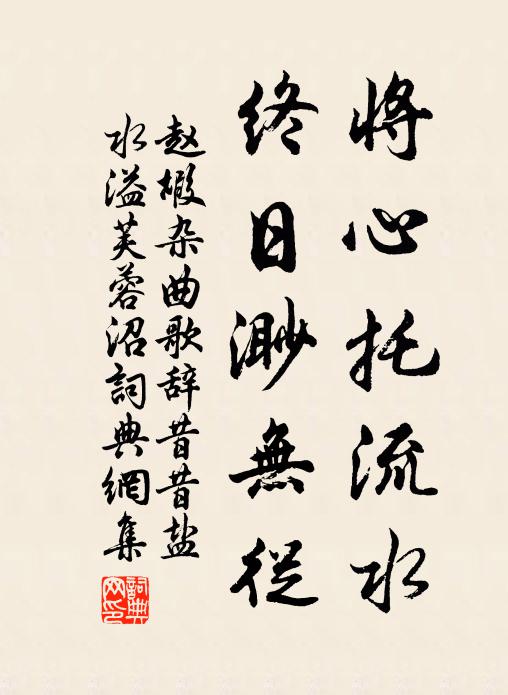 將心托流水
終日渺無從
赵嘏杂曲歌辞昔昔盐
水溢芙蓉沼詞典網集
詞典網印